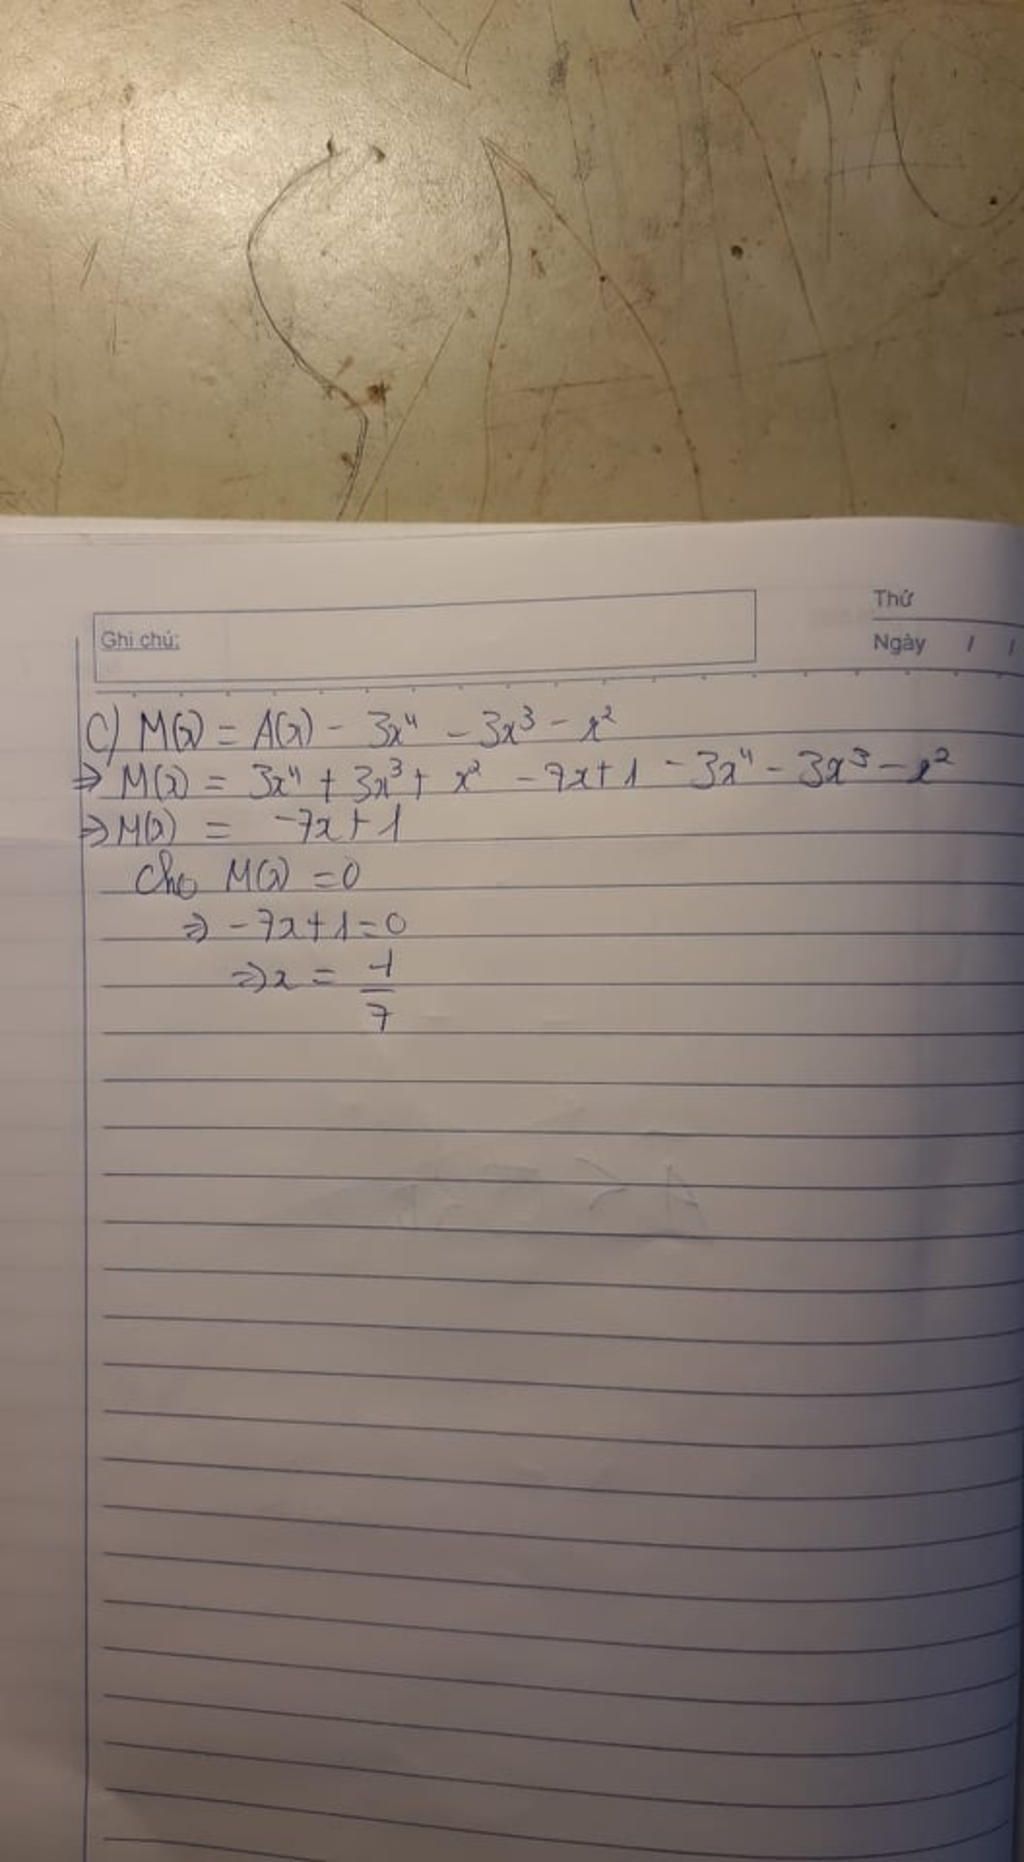 Thứ
Ghi chú:
Ngày / /
C) M(x) = A(x) - 3x⁴ - 3x³ - x²
⇒ M(x) = 3x⁴ + 3x³ + x² - 7x + 1 - 3x⁴ - 3x³ - x²
⇒ M(x) = -7x + 1
Cho M(x) = 0
⇒ -7x + 1 = 0
⇒ x = -1/7